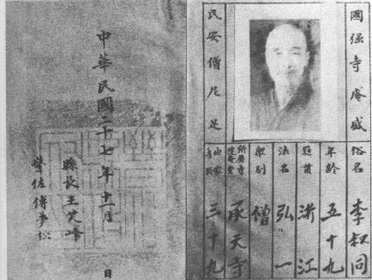 國强寺庵盛
民安僧尼足
俗名 李叔同
年齡 五十九
籍貫 浙江
法名 弘一
別 僧
所屬寺院庵堂 承天寺
三十九
中華民國二十七年十一月 日
縣長王笑峰
警佐傅